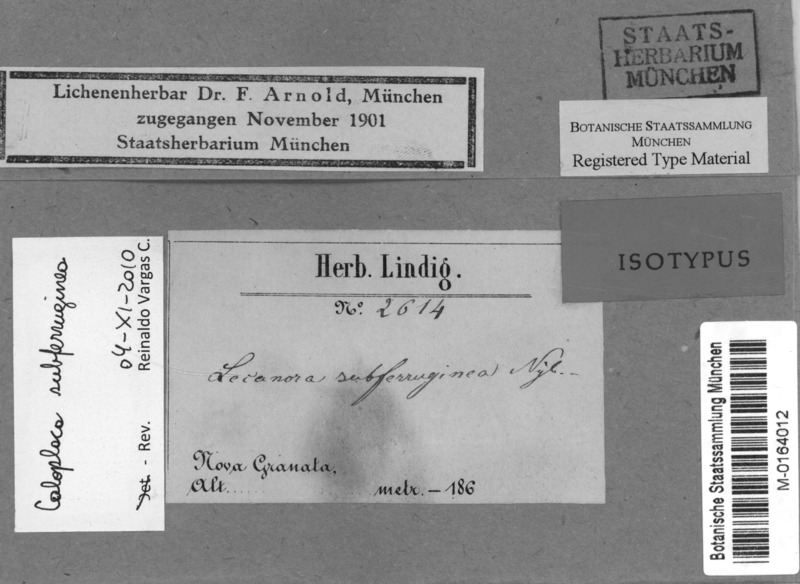 STAATS-
HERBARIUM
MÜNCHEN
Lichenenherbar Dr. F. Arnold, München
zugegangen November 1901
Staatsherbarium München
BOTANISCHE STAATSSAMMLUNG
MÜNCHEN
Registered Type Material
ISOTYPUS
Herb. Lindig.
No. 2614
Lecanora subferruginea Nyl.
Nova Granata,
Alt. metr. - 186
Caloplaca subferruginea
04-XI-2010
Det. - Rev. Reinaldo Vargas C.
Botanische Staatssammlung München
M-0164012